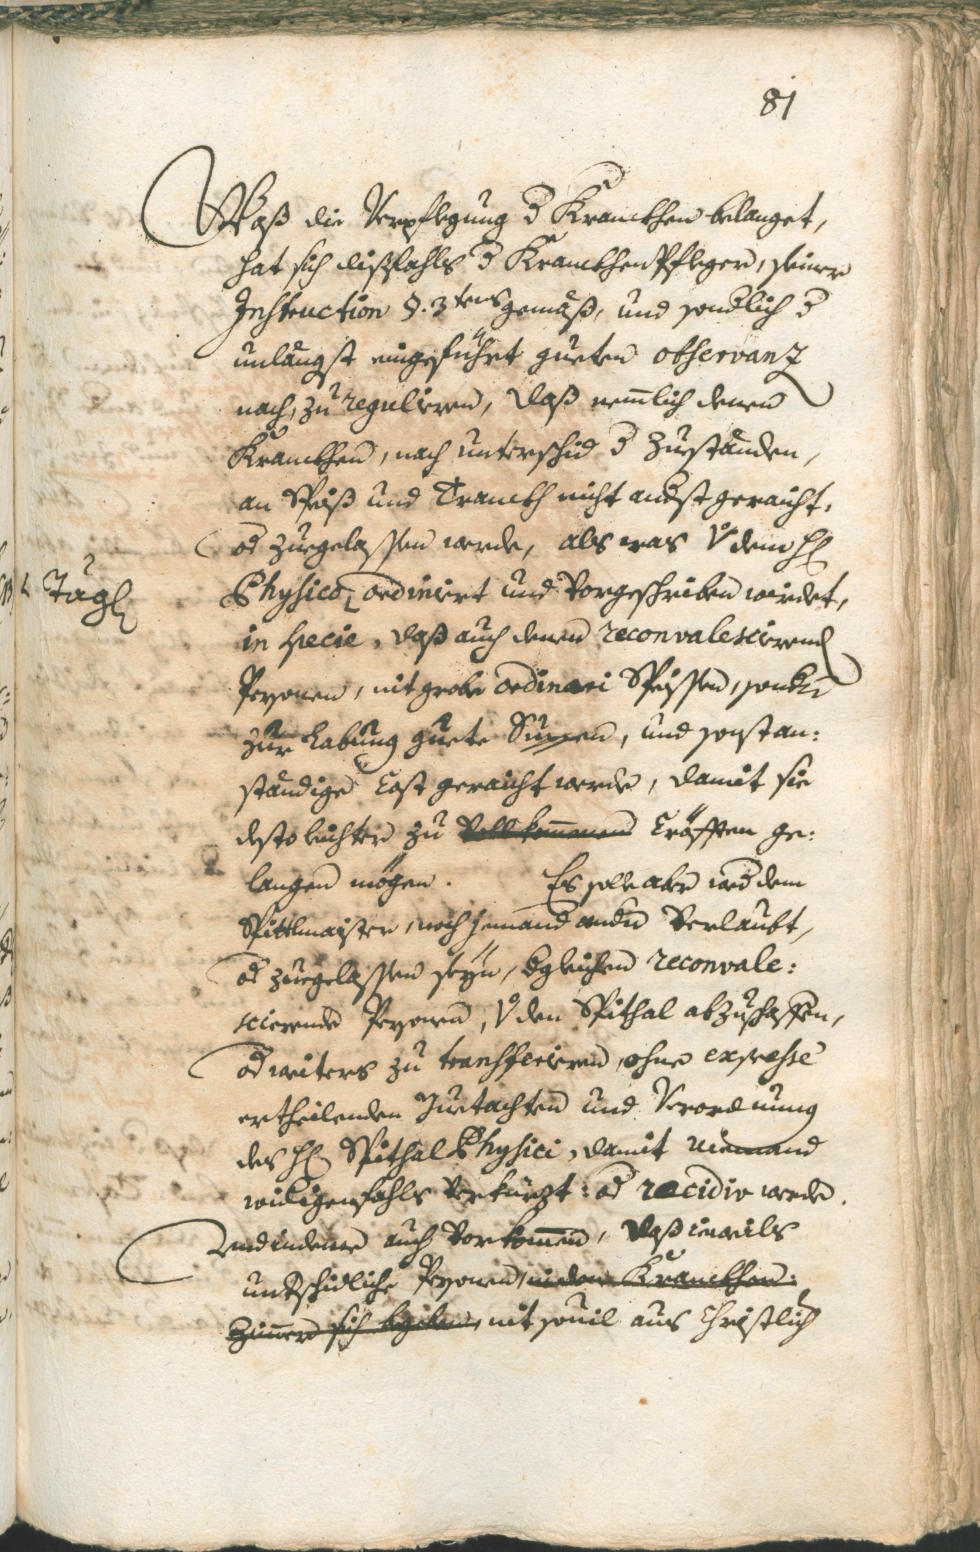 81
Waß die Verpflegung d Kranckhen belanget,
hat sich dißfahls d Kranckhen Pfleger, seiner
Instruction §. 3tens gemäß, und sondlich d
unlängst eingeführt gueten observanz
nach, zu regulieren, daß nemlich denen
Kranckhen, nach unterschid d Zueständen,
an Speiß und Tranckh nicht andst geraicht,
od zuegelassen werde, als was v dem H
Tägl
Physico ordiniert und vorgeschriben wirdet,
in specie, daß auch denen reconvalescierend
Persohnen, nit grobe ordinari Speissen, sondn
zur Labung guete Suppen, und sonst an:
ständige Cost geraicht werde, damit sie
desto leichter zu vollkommenen Cräfften ge:
langen mögen. Es solle aber wed dem
Spittlmaister, noch jemand andn verlaubt,
od zuegelassen seyn, dgleichen reconvale:
scierende Persohnen, v den Spithal abzuschaffen,
od weiters zu transferieren, ohne expresse
ertheilenden Guetachten und Verordnung
des H Spithal Physici, damit niemand
widigenfahls verkürzt: od recidiv werde.
Und indeme auch vorkommen, daß jeweils
untschidliche Persohnen, in dem Kranckhen:
Zimmer sich bgeben, nit souil aus Christlich